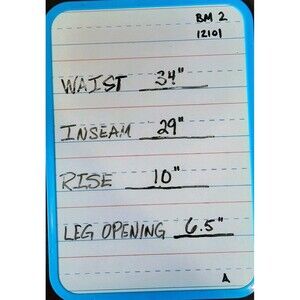 BM 2
12101
WAIST 34"
INSEAM 29"
RISE 10"
LEG OPENING 6.5"
A